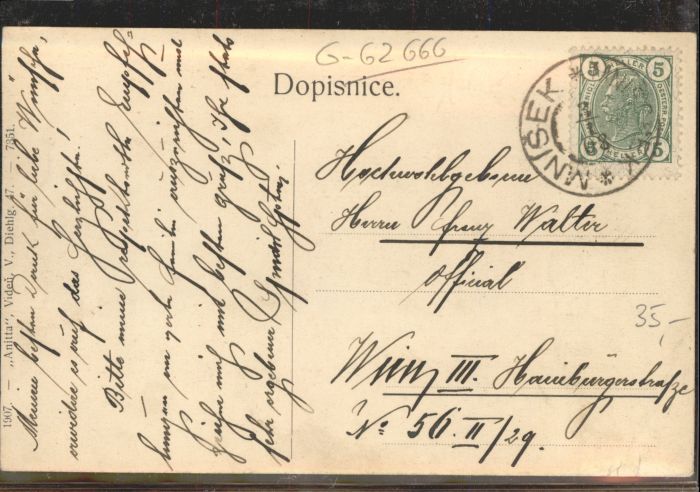 G-62666
Dopisnice.
5 5
5 5
MNIŠEK
Hochwohlgeboren
Herrn Franz Walter
Official
Wien III. Hainburgerstraße
No 56. II/29.
35,-
1907. — „Anjitta", Videň, V., Diehlg 47. — 7351.
Meinen besten Dank für liebe Wünsche,
erwidere es auf das herzlichste,
Bitte meine respektvolle Empfeh-
lungen an
mich mit besten Gruß, Ihr stets
sehr ergebener